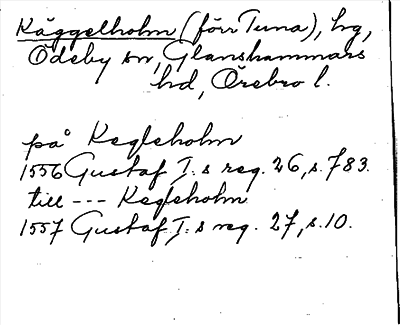 Käggelholm (förr Tuna), hg,
Ödeby sn, Glanshammars
hd, Örebro l.
på Kegleholm
1556 Gustaf I.s reg. 26, s. 783.
till --- Kegleholm
1557 Gustaf I.s reg. 27, s. 10.